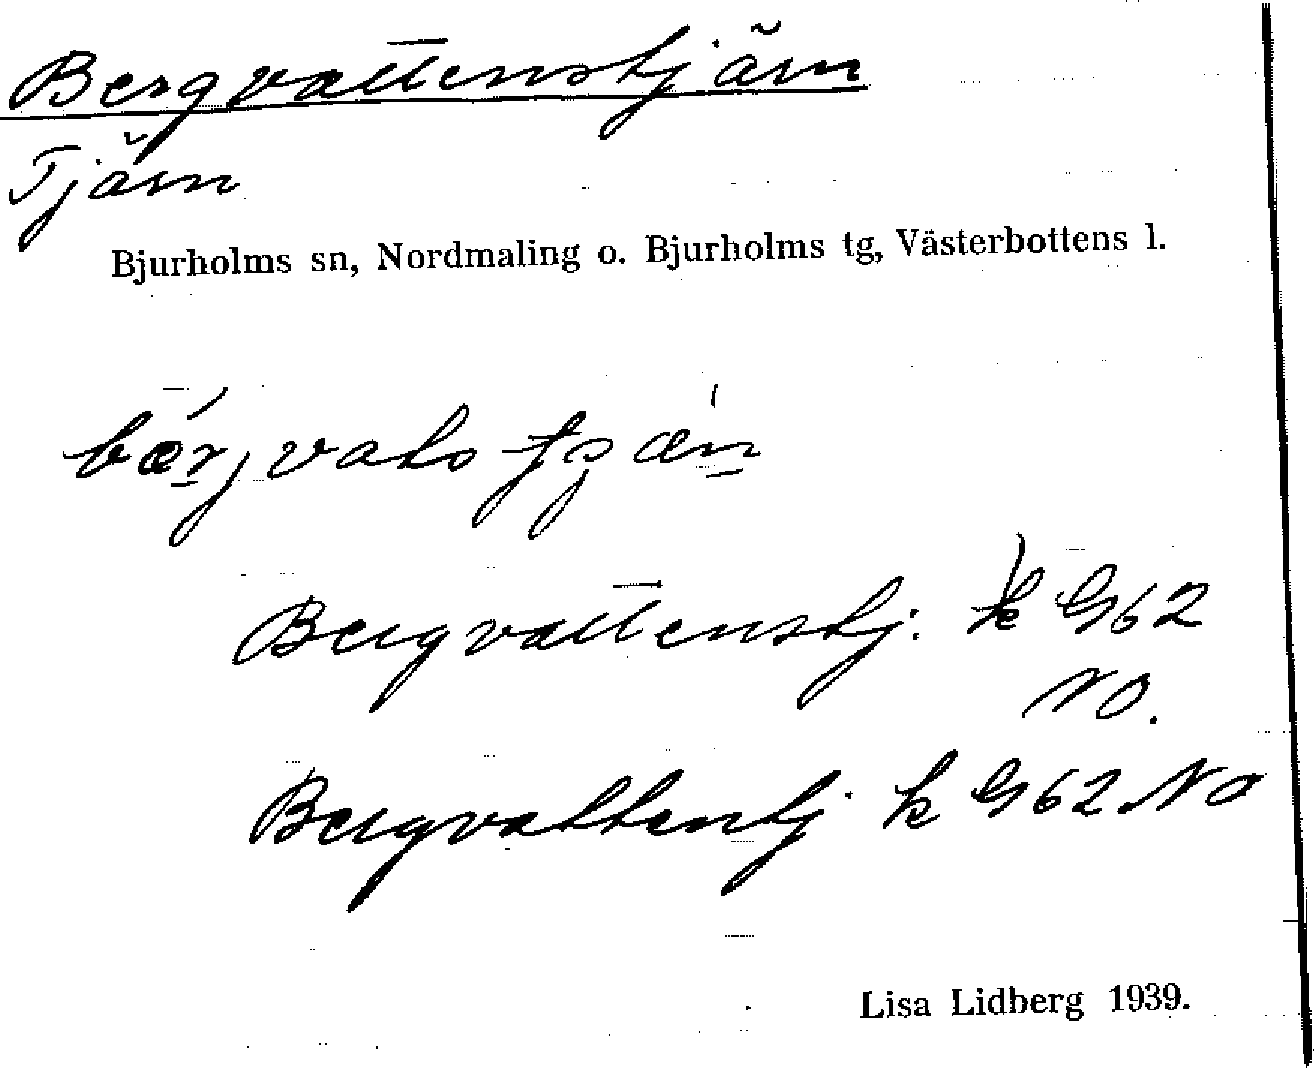 Bergvattenstjärn
Tjärn
Bjurholms sn, Nordmaling o. Bjurholms tg, Västerbottens l.
Bergvattenstj. k G62
NO.
Bergvattentj. k G62 NO
Lisa Lidberg 1939.